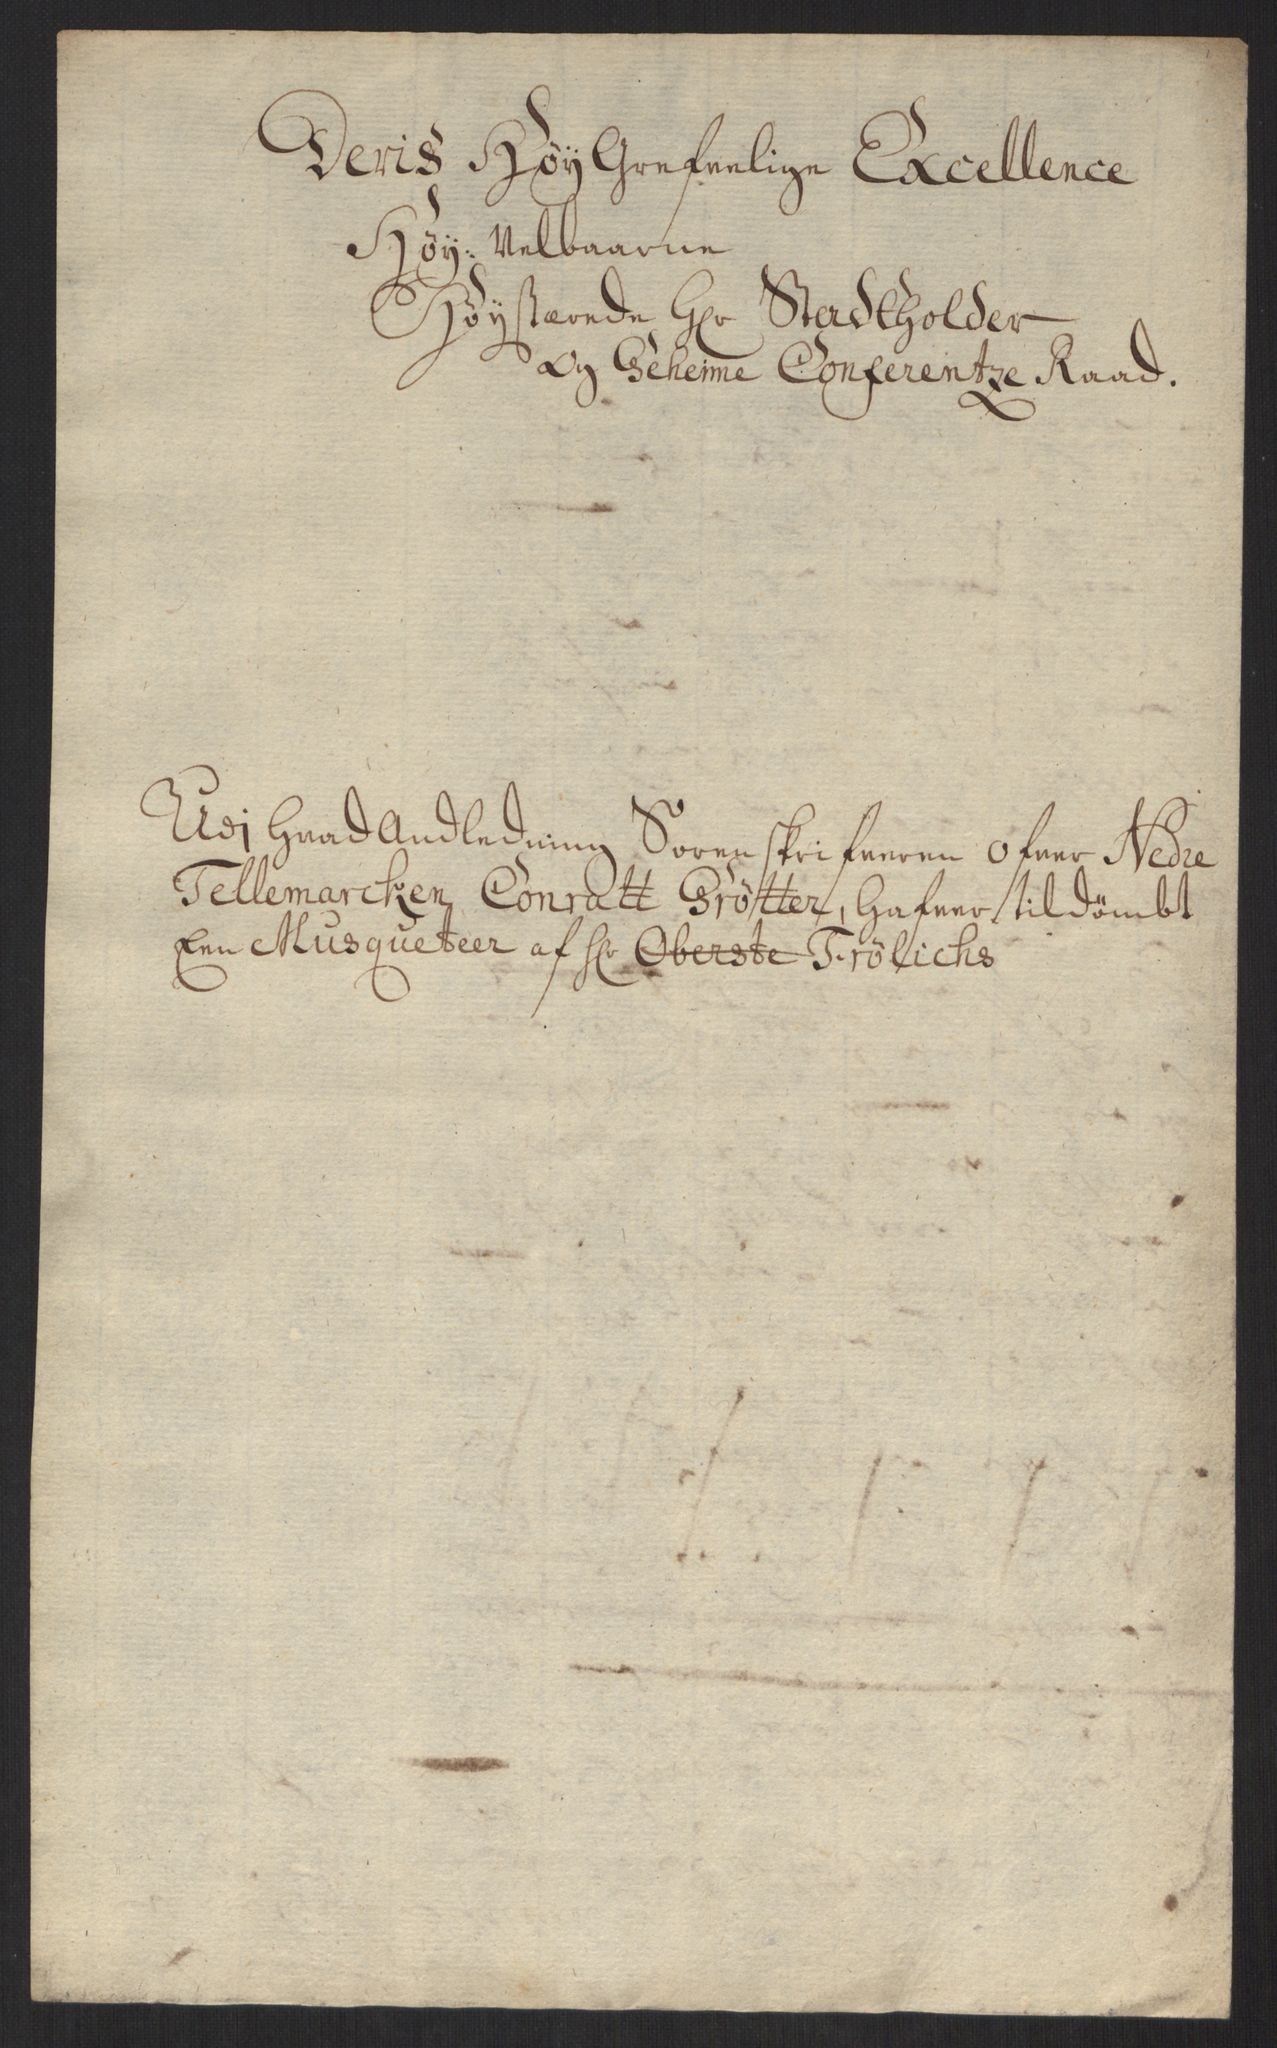 Deris Høy Grefvelige Excellence
Høy: Velbaarne
Høystærede Hr Stadtholder
Og Geheime Conferentze Raad.
Udj hvad Andledning Sorenskrifveren ofver Nedre
Tellemarcken, Conratt Grötter, hafver tildömbt
Een Musqueteer af Hr Oberste Frölichs